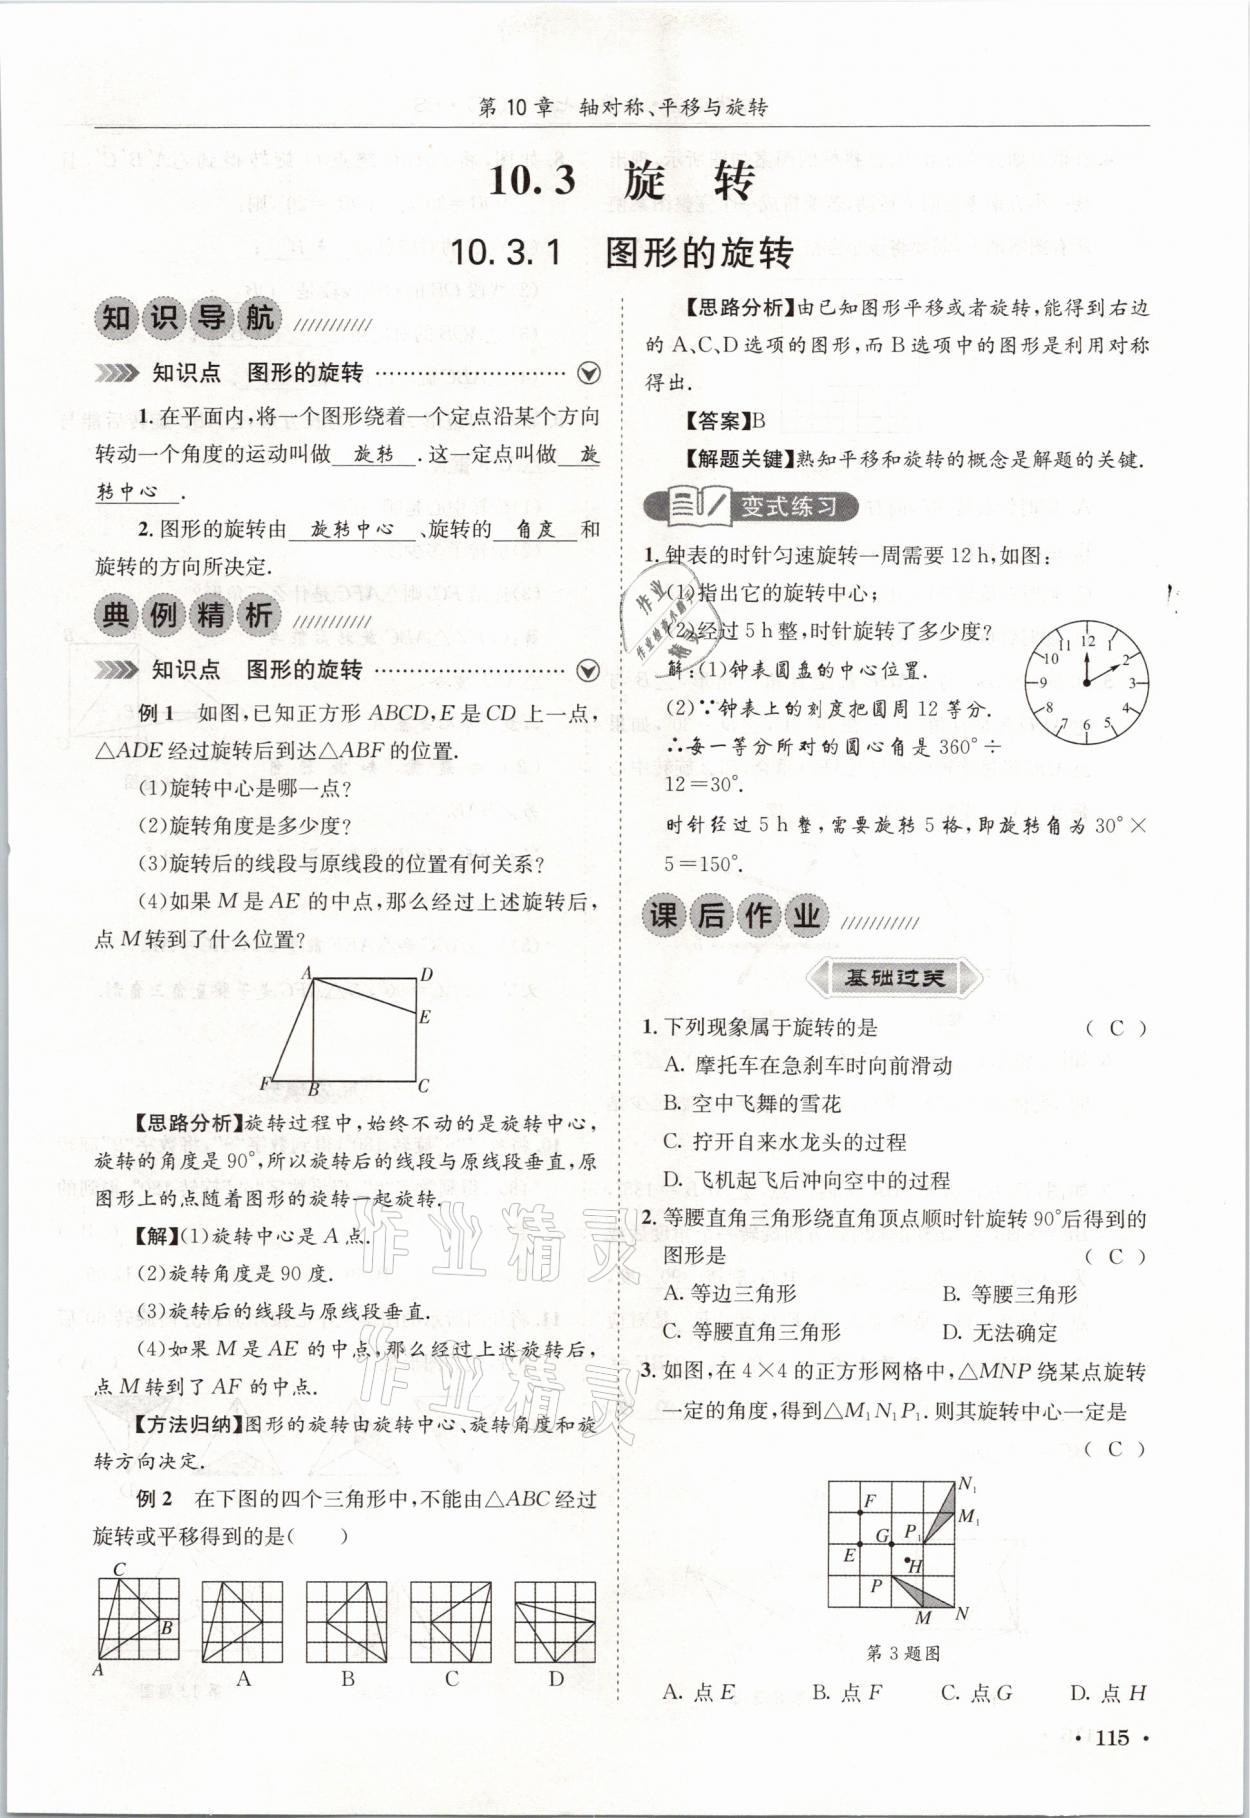 第10章 轴对称、平移与旋转
10.3 旋 转
10.3.1 图形的旋转
知识导航
知识点 图形的旋转
1.在平面内,将一个图形绕着一个定点沿某个方向
转动一个角度的运动叫做 旋转 .这一定点叫做 旋
转中心 .
2.图形的旋转由 旋转中心 、旋转的 角度 和
旋转的方向所决定.
典例精析
知识点 图形的旋转
例1 如图,已知正方形ABCD,E是CD上一点,
△ADE经过旋转后到达△ABF的位置.
(1)旋转中心是哪一点?
(2)旋转角度是多少度?
(3)旋转后的线段与原线段的位置有何关系?
(4)如果M是AE的中点,那么经过上述旋转后,
点M转到了什么位置?
A D
E
F B C
【思路分析】旋转过程中,始终不动的是旋转中心,
旋转的角度是90°,所以旋转后的线段与原线段垂直,原
图形上的点随着图形的旋转一起旋转.
【解】(1)旋转中心是A点.
(2)旋转角度是90度.
(3)旋转后的线段与原线段垂直.
(4)如果M是AE的中点,那么经过上述旋转后,
点M转到了AF的中点.
【方法归纳】图形的旋转由旋转中心、旋转角度和旋
转方向决定.
例2 在下图的四个三角形中,不能由△ABC经过
旋转或平移得到的是( )
C
B
A
A B C D
【思路分析】由已知图形平移或者旋转,能得到右边
的A、C、D选项的图形,而B选项中的图形是利用对称
得出.
【答案】B
【解题关键】熟知平移和旋转的概念是解题的关键.
变式练习
1.钟表的时针匀速旋转一周需要12 h,如图:
(1)指出它的旋转中心;
(2)经过5 h整,时针旋转了多少度?
解:(1)钟表圆盘的中心位置.
(2)∵钟表上的刻度把圆周12等分.
∴每一等分所对的圆心角是360°÷
12=30°.
时针经过5 h整,需要旋转5格,即旋转角为30°×
5=150°.
12 1 2 3 4 5 6 7 8 9 10 11
课后作业
基础过关
1.下列现象属于旋转的是 ( C )
A. 摩托车在急刹车时向前滑动
B. 空中飞舞的雪花
C. 拧开自来水龙头的过程
D. 飞机起飞后冲向空中的过程
2.等腰直角三角形绕直角顶点顺时针旋转90°后得到的
图形是 ( C )
A. 等边三角形 B. 等腰三角形
C. 等腰直角三角形 D. 无法确定
3.如图,在4×4的正方形网格中,△MNP绕某点旋转
一定的角度,得到△M₁N₁P₁.则其旋转中心一定是
( C )
N₁
F M₁
G P₁
E H
P
M N
第3题图
A. 点E B. 点F C. 点G D. 点H
· 115 ·
作业精灵
作业精灵